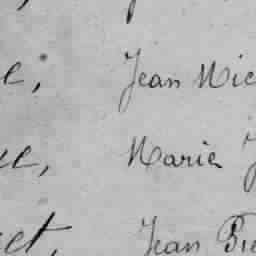 e, Jean Nic
ue, Marie J
et, Jean Pie